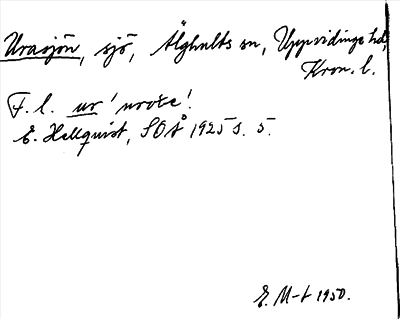 Urasjön, sjö, Älghults sn, Uppvidinge hd,
Kron. l.
F. l. ur 'uroxe'.
E. Hellquist, SOÅ 1925 s. 5.
E. M-t 1950.